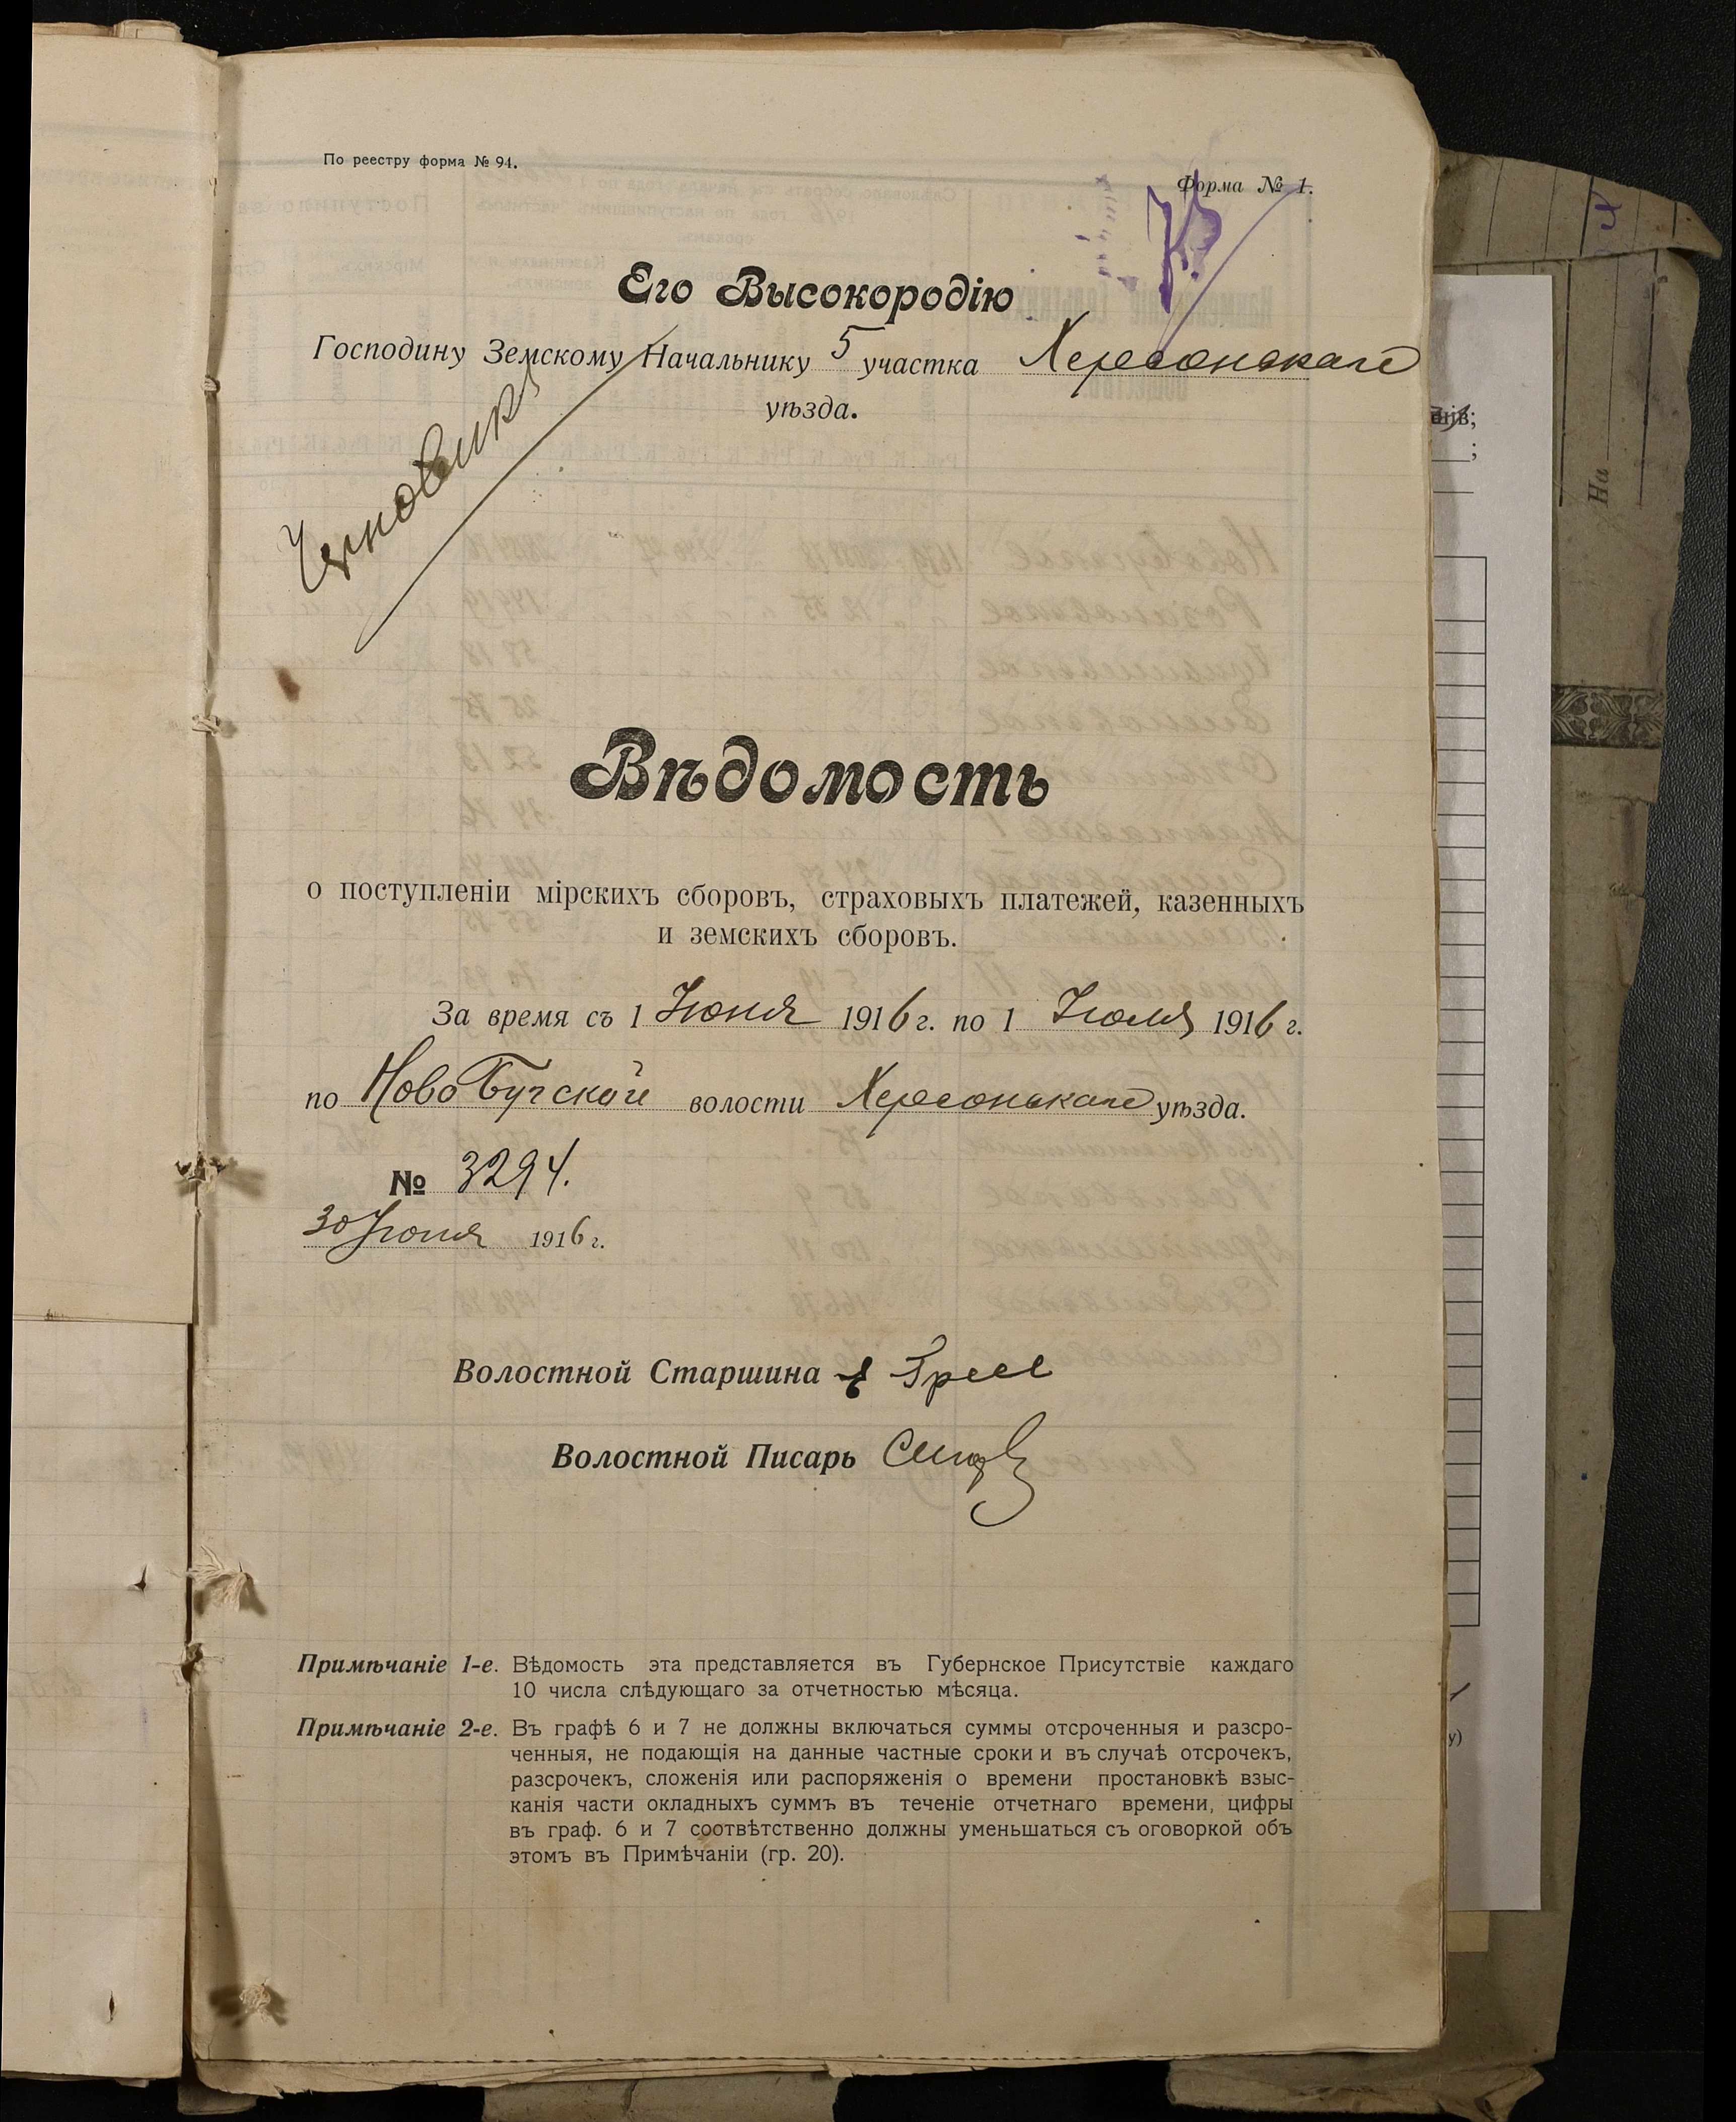 По реестру форма № 94.
Форма № 1.
Его Высокородію
Господину Земскому Начальнику 5 участка Херсонскаго
уѣзда.
Черновикъ
Вѣдомость
о поступленіи мірскихъ сборовъ, страховыхъ платежей, казенныхъ
и земскихъ сборовъ.
За время съ 1 Іюня 1916 г. по 1 Іюля 1916 г.
по Ново Бугской волости Херсонскаго уѣзда.
№ 3294.
30 Іюня 1916 г.
Волостной Старшина
Волостной Писарь
Примѣчаніе 1-е. Вѣдомость эта представляется въ Губернское Присутствіе каждаго
10 числа слѣдующаго за отчетностью мѣсяца.
Примѣчаніе 2-е. Въ графѣ 6 и 7 не должны включаться суммы отсроченныя и разсро-
ченныя, не подающія на данные частные сроки и въ случаѣ отсрочекъ,
разсрочекъ, сложенія или распоряженія о времени простановкѣ взыс-
канія части окладныхъ суммъ въ теченіе отчетнаго времени, цифры
въ граф. 6 и 7 соотвѣтственно должны уменьшаться съ оговоркой объ
этомъ въ Примѣчаніи (гр. 20).
На